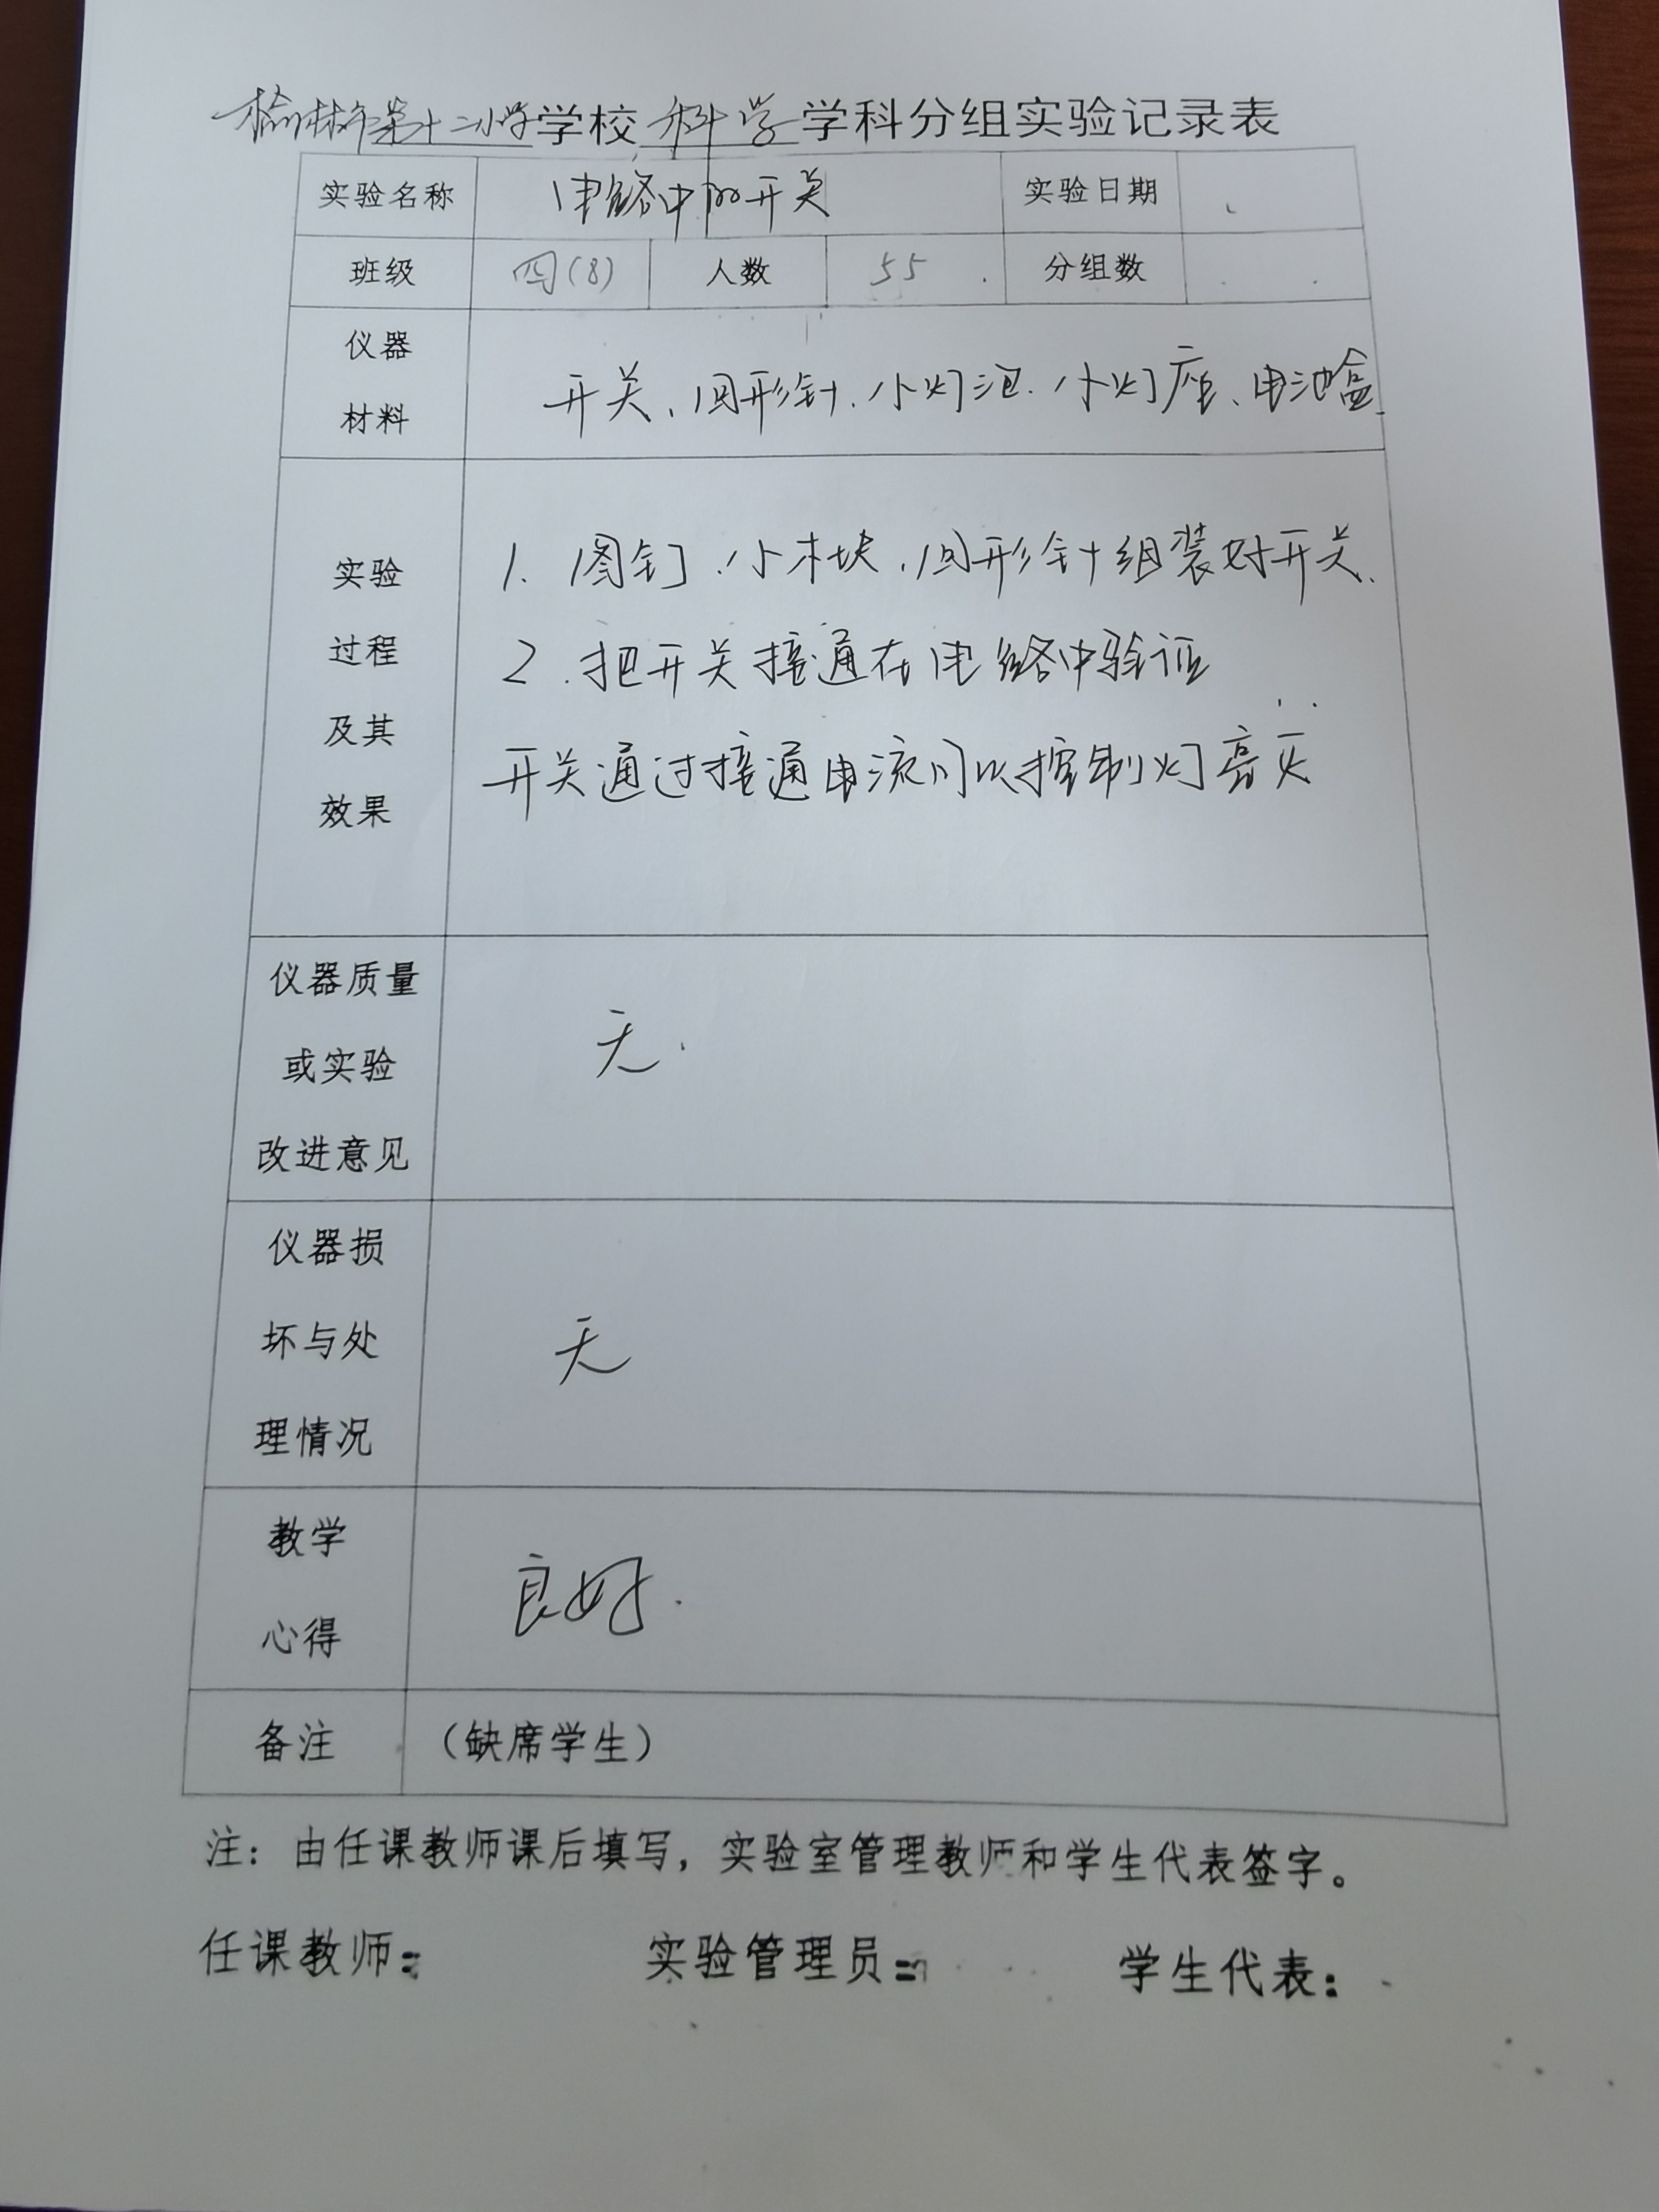 榆林市第十二小学学校科学学科分组实验记录表
实验名称 电路中的开关 实验日期
班级 四(8) 人数 55 分组数
仪器
材料
开关、回形针、小灯泡、小灯座、电池盒
实验
过程
及其
效果
1、图钉、小木块、回形针组装好开关、
2、把开关接通在电路中验证
开关通过接通电流可以控制灯亮灭
仪器质量
或实验
改进意见
无.
仪器损
坏与处
理情况
无
教学
心得
良好.
备注 (缺席学生)
注：由任课教师课后填写，实验室管理教师和学生代表签字。
任课教师： 实验管理员： 学生代表：